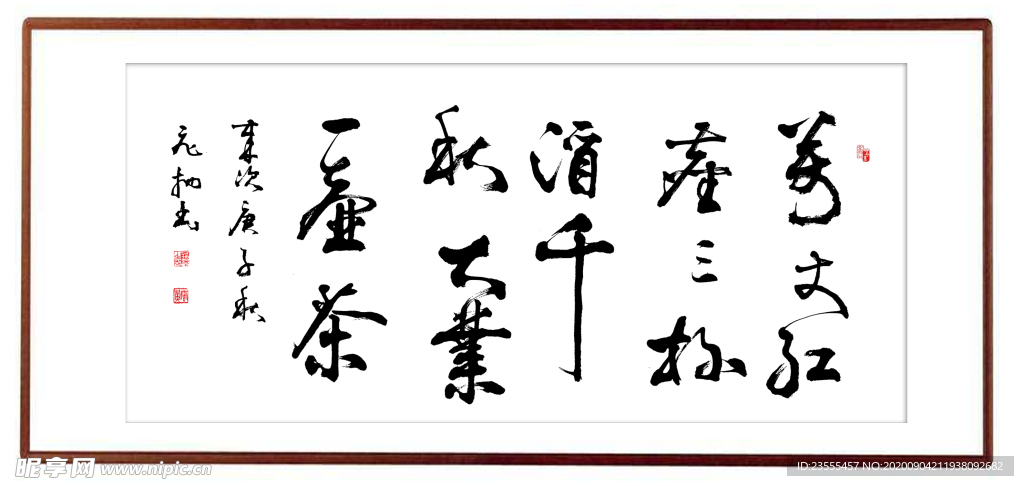 萬丈紅
塵三杯
酒千
秋大業
一壺茶
歲次庚子秋
昵享网 www.nipic.cn
ID:23555457 NO:20200904211938092682